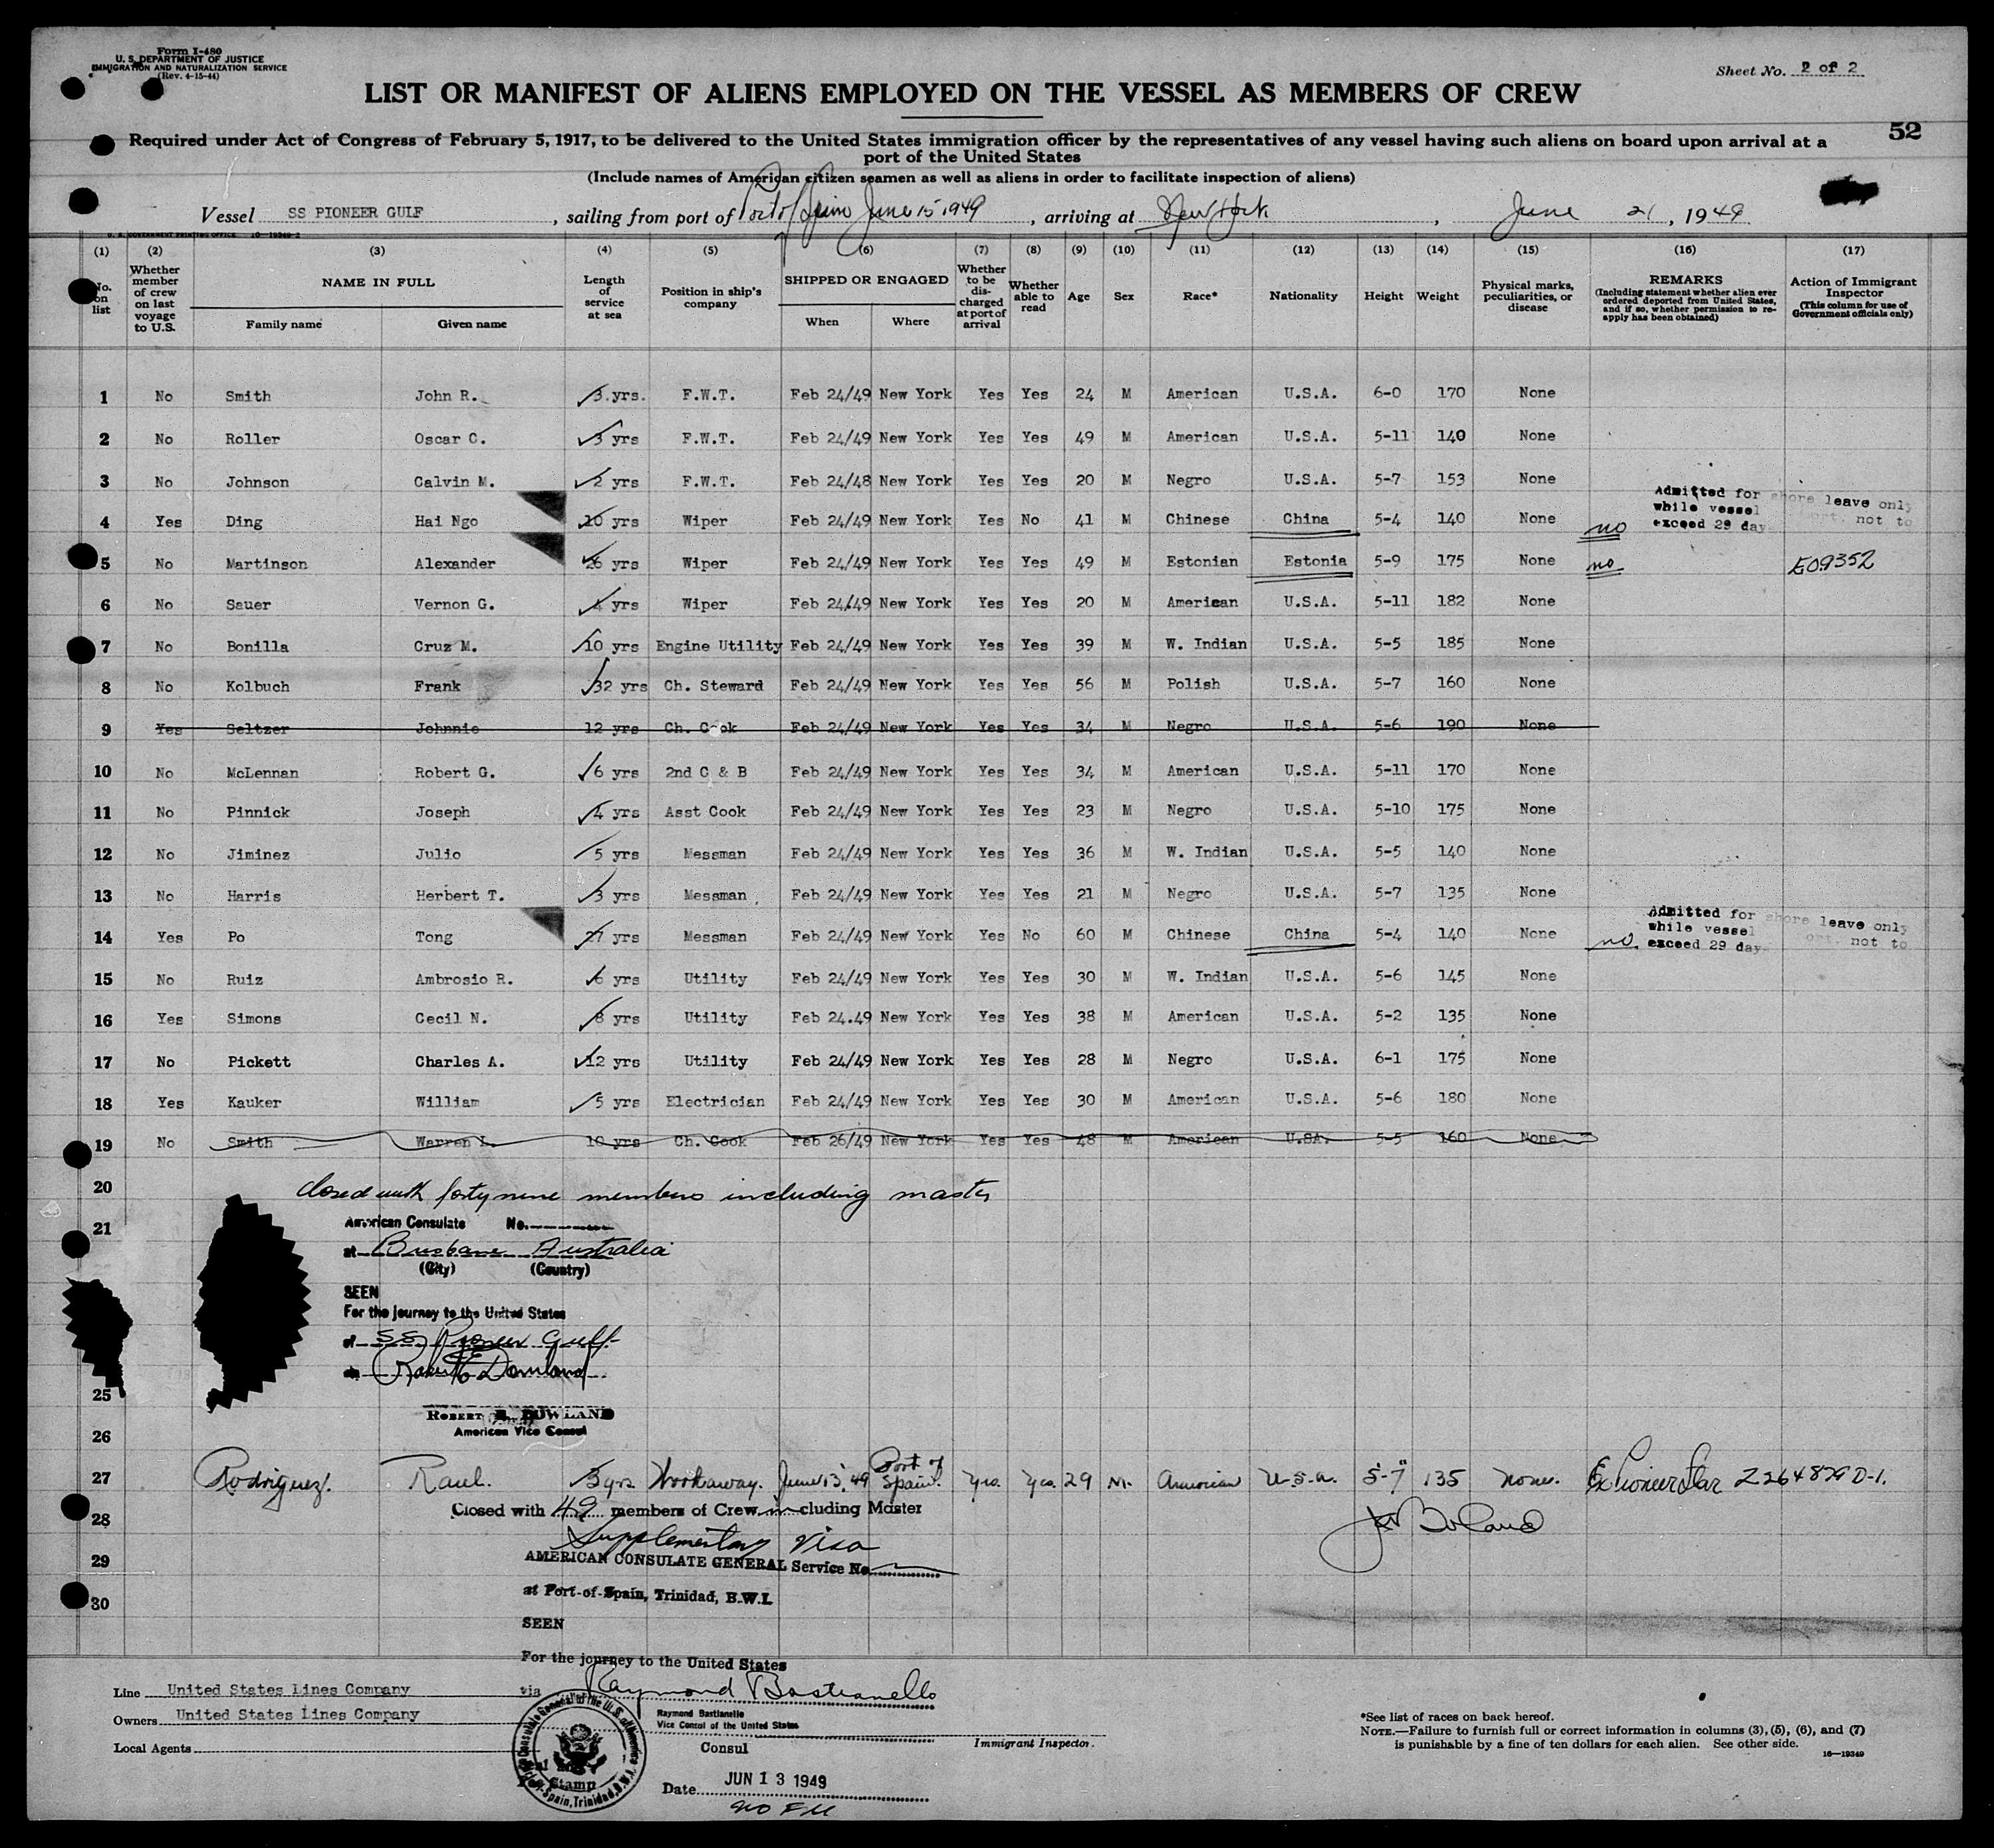 Form I-480
U. S. DEPARTMENT OF JUSTICE
IMMIGRATION AND NATURALIZATION SERVICE
(Rev. 4-15-44)
Sheet No. 2 of 2
LIST OR MANIFEST OF ALIENS EMPLOYED ON THE VESSEL AS MEMBERS OF CREW
52
Required under Act of Congress of February 5, 1917, to be delivered to the United States immigration officer by the representatives of any vessel having such aliens on board upon arrival at a
port of the United States
(Include names of American citizen seamen as well as aliens in order to facilitate inspection of aliens)
Vessel SS PIONEER GULF, sailing from port of Port of Spain June 15 1949, arriving at New York, June 21, 1949
U. S. GOVERNMENT PRINTING OFFICE 16-19349-2
(1) (2) (3) (4) (5) (6) (7) (8) (9) (10) (11) (12) (13) (14) (15) (16) (17)
No. on list
Whether member of crew on last voyage to U.S.
NAME IN FULL
Family name
Given name
Length of service at sea
Position in ship's company
SHIPPED OR ENGAGED
When
Where
Whether to be discharged at port of arrival
Whether able to read
Age
Sex
Race*
Nationality
Height
Weight
Physical marks, peculiarities, or disease
REMARKS
(Including statement whether alien ever ordered deported from United States, and if so, whether permission to reapply has been obtained)
Action of Immigrant Inspector
(This column for use of Government officials only)
1 No Smith John R. 3 yrs. F.W.T. Feb 24/49 New York Yes Yes 24 M American U.S.A. 6-0 170 None
2 No Roller Oscar C. 3 yrs F.W.T. Feb 24/49 New York Yes Yes 49 M American U.S.A. 5-11 140 None
3 No Johnson Calvin M. 2 yrs F.W.T. Feb 24/48 New York Yes Yes 20 M Negro U.S.A. 5-7 153 None
4 Yes Ding Hai Ngo 10 yrs Wiper Feb 24/49 New York Yes No 41 M Chinese China 5-4 140 None no Admitted for shore leave only while vessel port. not to exceed 29 day
5 No Martinson Alexander 26 yrs Wiper Feb 24/49 New York Yes Yes 49 M Estonian Estonia 5-9 175 None no E09352
6 No Sauer Vernon G. 4 yrs Wiper Feb 24/49 New York Yes Yes 20 M American U.S.A. 5-11 182 None
7 No Bonilla Cruz M. 10 yrs Engine Utility Feb 24/49 New York Yes Yes 39 M W. Indian U.S.A. 5-5 185 None
8 No Kolbuch Frank 32 yrs Ch. Steward Feb 24/49 New York Yes Yes 56 M Polish U.S.A. 5-7 160 None
9 Yes Seltzer Johnnie 12 yrs Ch. Cook Feb 24/49 New York Yes Yes 34 M Negro U.S.A. 5-6 190 None
10 No McLennan Robert G. 6 yrs 2nd C & B Feb 24/49 New York Yes Yes 34 M American U.S.A. 5-11 170 None
11 No Pinnick Joseph 4 yrs Asst Cook Feb 24/49 New York Yes Yes 23 M Negro U.S.A. 5-10 175 None
12 No Jiminez Julio 5 yrs Messman Feb 24/49 New York Yes Yes 36 M W. Indian U.S.A. 5-5 140 None
13 No Harris Herbert T. 3 yrs Messman Feb 24/49 New York Yes Yes 21 M Negro U.S.A. 5-7 135 None
14 Yes Po Tong 27 yrs Messman Feb 24/49 New York Yes No 60 M Chinese China 5-4 140 None no Admitted for shore leave only while vessel port. not to exceed 29 day
15 No Ruiz Ambrosio R. 6 yrs Utility Feb 24/49 New York Yes Yes 30 M W. Indian U.S.A. 5-6 145 None
16 Yes Simons Cecil N. 8 yrs Utility Feb 24.49 New York Yes Yes 38 M American U.S.A. 5-2 135 None
17 No Pickett Charles A. 12 yrs Utility Feb 24/49 New York Yes Yes 28 M Negro U.S.A. 6-1 175 None
18 Yes Kauker William 5 yrs Electrician Feb 24/49 New York Yes Yes 30 M American U.S.A. 5-6 180 None
19 No Smith Warren L. 10 yrs Ch. Cook Feb 26/49 New York Yes Yes 48 M American U.SA. 5-5 160 None
20 Closed with forty nine members including master
21 American Consulate No.
at Brisbane Australia
(City) (Country)
SEEN
For the journey to the United States
of SS Pioneer Gulf
Robert E Dowland
25
ROBERT E. DOWLAND
American Vice Consul
26
27 Rodriguez. Raul. 3 yrs Workaway. June 13, 49 Port of Spain. Yes. Yes. 29 M. American U.S.A. 5-7" 135 None. Ex Pioneer Star Z264829 D-1.
28 Closed with 49 members of Crew including Master
J W Boland
Supplementary Visa
29 AMERICAN CONSULATE GENERAL Service No.
at Port-of-Spain, Trinidad, B.W.I.
30
SEEN
For the journey to the United States
via
Raymond Bastianello
Raymond Bastianello
Vice Consul of the United States
Consul
Line United States Lines Company
Owners United States Lines Company
Local Agents
Immigrant Inspector.
Stamp
Date JUN 13 1949
no Fee
*See list of races on back hereof.
NOTE.—Failure to furnish full or correct information in columns (3), (5), (6), and (7)
is punishable by a fine of ten dollars for each alien. See other side.
16—19349